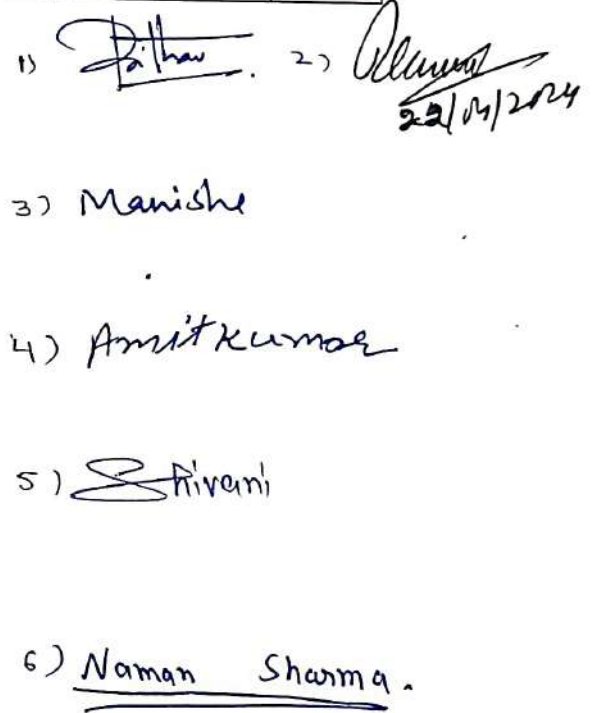 1) 2)
22/04/2024
3) Manishe
4) Amit Kumar
5) Shivani
6) Naman Sharma.